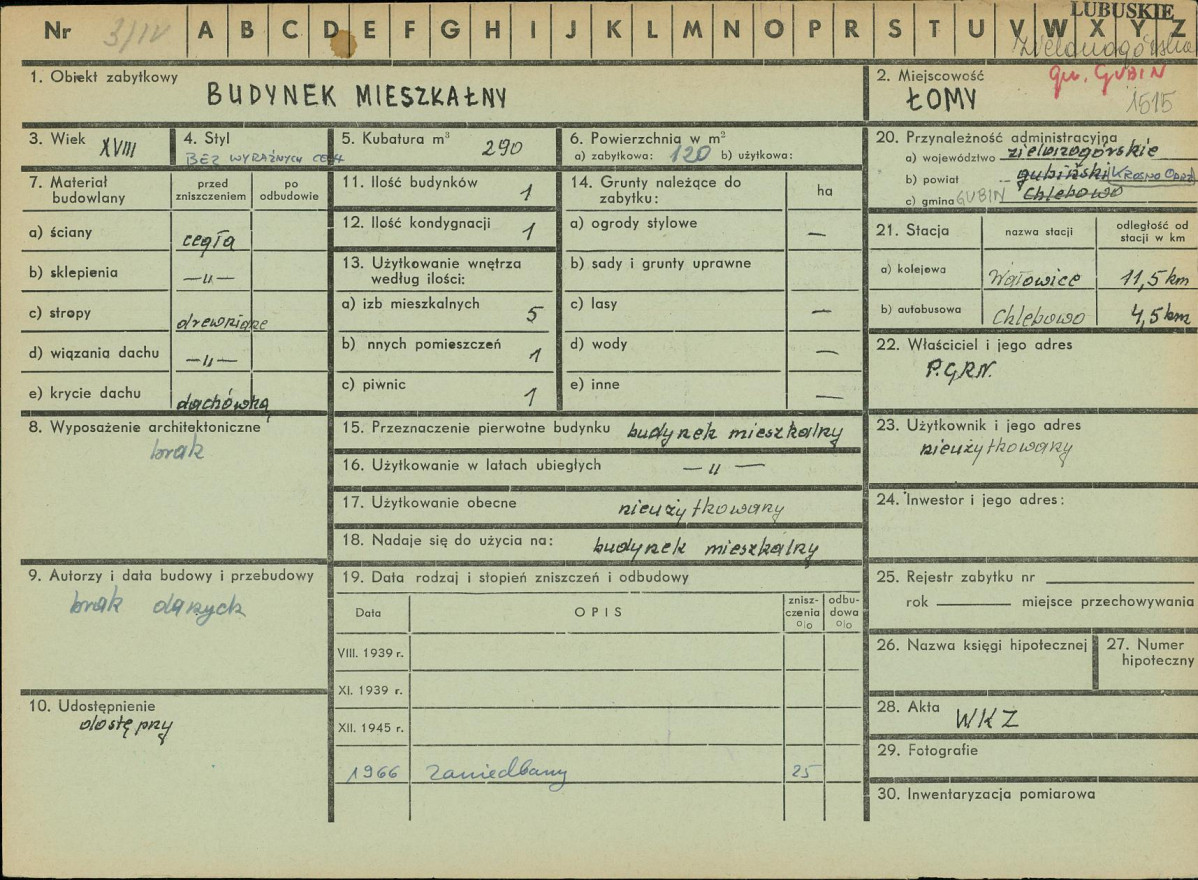 LUBUSKIE
Nr 3/IV A B C D E F G H I J K L M N O P R S T U V W X Y Z
Zielonogórska
1. Obiekt zabytkowy
BUDYNEK MIESZKALNY
2. Miejscowość
gm. GUBIN
ŁOMY
1515
3. Wiek XVIII
4. Styl
BEZ WYRAŹNYCH CECH
5. Kubatura m³ 290
6. Powierzchnia w m²
a) zabytkowa: 120 b) użytkowa:
20. Przynależność administracyjna
a) województwo zielonogórskie
b) powiat gubiński KROSNO ODRZ
c) gmina GUBIN Chlebowo
7. Materiał budowlany
przed zniszczeniem
po odbudowie
a) ściany cegła
b) sklepienia —„—
c) stropy drewniane
d) wiązania dachu —„—
e) krycie dachu dachówka
11. Ilość budynków 1
12. Ilość kondygnacji 1
13. Użytkowanie wnętrza według ilości:
a) izb mieszkalnych 5
b) nnych pomieszczeń 1
c) piwnic 1
14. Grunty należące do zabytku:
ha
a) ogrody stylowe —
b) sady i grunty uprawne
c) lasy —
d) wody —
e) inne —
21. Stacja
nazwa stacji
odległość od stacji w km
a) kolejowa Wałowice 11,5 km
b) autobusowa Chlebowo 4,5 km
22. Właściciel i jego adres
P.GRN.
8. Wyposażenie architektoniczne
brak
15. Przeznaczenie pierwotne budynku budynek mieszkalny
16. Użytkowanie w latach ubiegłych —„—
17. Użytkowanie obecne nieużytkowany
18. Nadaje się do użycia na: budynek mieszkalny
23. Użytkownik i jego adres
nieużytkowany
24. Inwestor i jego adres:
9. Autorzy i data budowy i przebudowy
brak danych
19. Data rodzaj i stopień zniszczeń i odbudowy
Data
OPIS
znisz-
czenia
o|o
odbu-
dowa
o|o
VIII. 1939 r.
XI. 1939 r.
XII. 1945 r.
1966 zaniedbany 25
25. Rejestr zabytku nr
rok miejsce przechowywania
26. Nazwa księgi hipotecznej
27. Numer hipoteczny
10. Udostępnienie
dostępny
28. Akta WKZ
29. Fotografie
30. Inwentaryzacja pomiarowa